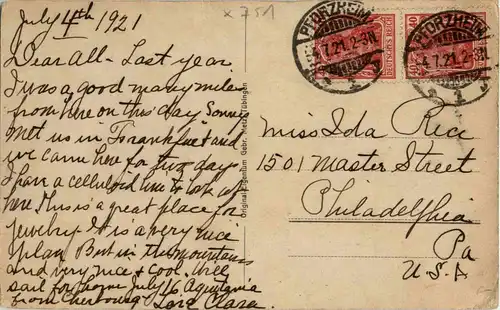 July 4th 1921
x 751
Dear All - Last year
I was a good many miles
from here on this day Sonny
met us in Frankfurt and
we came here for two days
I have a celluloid line to look up
here. This is a great place for
jewelry It is a very nice
place But in the mountains
and very nice & cool. Will
sail for home July 16 Aquitania
from Cherbourg Love Clara.
Original-Eigentum Gebr. Metz, Tübingen
PFORZHEIM
4.7.21.2-3N
DEUTSCHES REICH
40
PFORZHEIM
4.7.21.2-3N
Miss Ida Rice
1501 Master Street
Philadelphia
Pa
U.S.A